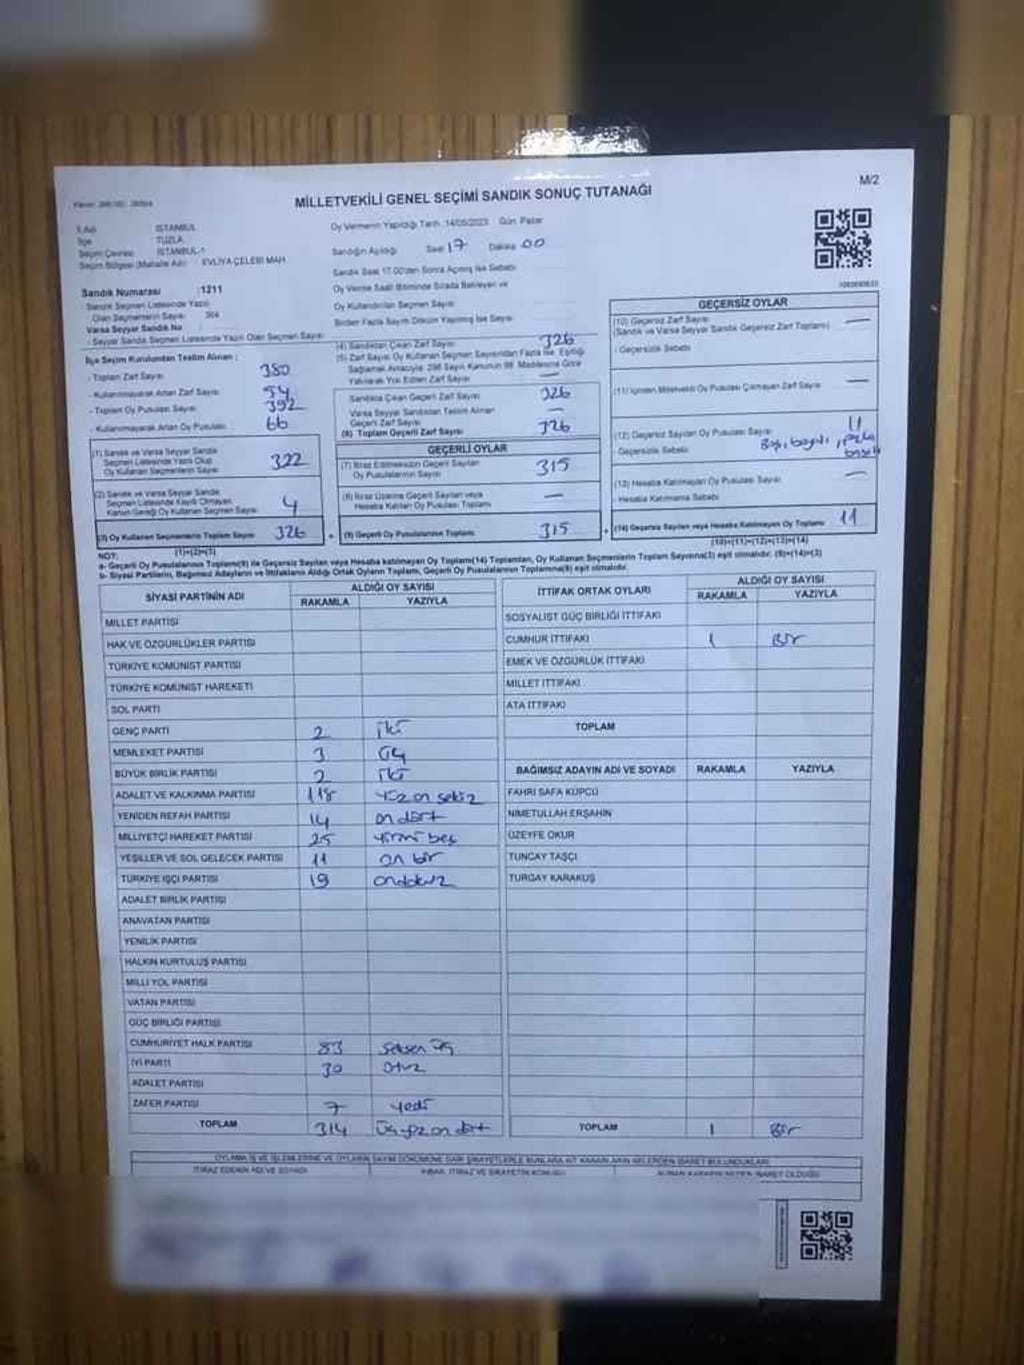 M/2
MİLLETVEKİLİ GENEL SEÇİMİ SANDIK SONUÇ TUTANAĞI
İl Adı İSTANBUL
İlçe TUZLA
Seçim Çevresi İSTANBUL-1
Seçim Bölgesi (Mahalle Adı) EVLİYA ÇELEBİ MAH.
Oy Vermenin Yapıldığı Tarih 14/05/2023 Gün Pazar
Sandığın Açıldığı Saat 17 Dakika 00
Sandık Saat 17.00'den Sonra Açılmış İse Sebebi
Oy Verme Saati Bitiminde Sırada Bekleyen ve
Oy Kullandırılan Seçmen Sayısı
Birden Fazla Sayım Döküm Yapılmış İse Sayısı
Sandık Numarası :1211
- Sandık Seçmen Listesinde Yazılı
Olan Seçmenlerin Sayısı 364
Varsa Seyyar Sandık No
- Seyyar Sandık Seçmen Listesinde Yazılı Olan Seçmen Sayısı
İlçe Seçim Kurulundan Teslim Alınan :
- Toplam Zarf Sayısı 380
- Kullanılmayarak Artan Zarf Sayısı 54
- Toplam Oy Pusulası Sayısı 392
- Kullanılmayarak Artan Oy Pusulası 66
(1) Sandık ve Varsa Seyyar Sandık
Seçmen Listesinde Yazılı Olup
Oy Kullanan Seçmenlerin Sayısı 322
(2) Sandık ve Varsa Seyyar Sandık
Seçmen Listesinde Kayıtlı Olmayan
Kanun Gereği Oy Kullanan Seçmen Sayısı 4
(3) Oy Kullanan Seçmenlerin Toplam Sayısı 326
(1)+(2)=(3)
(4) Sandıktan Çıkan Zarf Sayısı 326
(5) Zarf Sayısı Oy Kullanan Seçmen Sayısından Fazla İse, Eşitliği
Sağlamak Amacıyla, 298 Sayılı Kanunun 98. Maddesine Göre
Yakılarak Yok Edilen Zarf Sayısı —
Sandıkta Çıkan Geçerli Zarf Sayısı 326
Varsa Seyyar Sandıktan Teslim Alınan
Geçerli Zarf Sayısı —
(6) Toplam Geçerli Zarf Sayısı 326
GEÇERLİ OYLAR
(7) İtiraz Edilmeksizin Geçerli Sayılan
Oy Pusulalarının Sayısı 315
(8) İtiraz Üzerine Geçerli Sayılan veya
Hesaba Katılan Oy Pusulası Toplamı —
(9) Geçerli Oy Pusulalarının Toplamı 315
GEÇERSİZ OYLAR
(10) Geçersiz Zarf Sayısı —
(Sandık ve Varsa Seyyar Sandık Geçersiz Zarf Toplamı)
- Geçersizlik Sebebi
(11) İçinden Milletvekili Oy Pusulası Çıkmayan Zarf Sayısı —
(12) Geçersiz Sayılan Oy Pusulası Sayısı 11
- Geçersizlik Sebebi
(13) Hesaba Katılmayan Oy Pusulası Sayısı —
- Hesaba Katılmama Sebebi
(14) Geçersiz Sayılan veya Hesaba Katılmayan Oy Toplamı 11
(10)+(11)+(12)+(13)=(14)
NOT:
a- Geçerli Oy Pusulalarının Toplamı(9) ile Geçersiz Sayılan veya Hesaba katılmayan Oy Toplamı(14) Toplamları, Oy Kullanan Seçmenlerin Toplam Sayısına(3) eşit olmalıdır. (9)+(14)=(3)
b- Siyasi Partilerin, Bağımsız Adayların ve İttifakların Aldığı Ortak Oyların Toplamı, Geçerli Oy Pusulalarının Toplamına(9) eşit olmalıdır.
SİYASİ PARTİNİN ADI ALDIĞI OY SAYISI
RAKAMLA YAZIYLA
MİLLET PARTİSİ
HAK VE ÖZGÜRLÜKLER PARTİSİ
TÜRKİYE KOMÜNİST PARTİSİ
TÜRKİYE KOMÜNİST HAREKETİ
SOL PARTİ
GENÇ PARTİ 2 iki
MEMLEKET PARTİSİ 3 üç
BÜYÜK BİRLİK PARTİSİ 2 iki
ADALET VE KALKINMA PARTİSİ 118 yüz on sekiz
YENİDEN REFAH PARTİSİ 14 on dört
MİLLİYETÇİ HAREKET PARTİSİ 25 yirmi beş
YEŞİLLER VE SOL GELECEK PARTİSİ 11 on bir
TÜRKİYE İŞÇİ PARTİSİ 19 ondokuz
ADALET BİRLİK PARTİSİ
ANAVATAN PARTİSİ
YENİLİK PARTİSİ
HALKIN KURTULUŞ PARTİSİ
MİLLİ YOL PARTİSİ
VATAN PARTİSİ
GÜÇ BİRLİĞİ PARTİSİ
CUMHURİYET HALK PARTİSİ 83 seksen üç
İYİ PARTİ 30 otuz
ADALET PARTİSİ
ZAFER PARTİSİ 7 yedi
TOPLAM 314 üçyüz on dört
İTTİFAK ORTAK OYLARI ALDIĞI OY SAYISI
RAKAMLA YAZIYLA
SOSYALİST GÜÇ BİRLİĞİ İTTİFAKI
CUMHUR İTTİFAKI 1 Bir
EMEK VE ÖZGÜRLÜK İTTİFAKI
MİLLET İTTİFAKI
ATA İTTİFAKI
TOPLAM
BAĞIMSIZ ADAYIN ADI VE SOYADI RAKAMLA YAZIYLA
FAHRİ SAFA KÜPCÜ
NİMETULLAH ERŞAHİN
ÜZEYFE OKUR
TUNCAY TAŞÇI
TURGAY KARAKUŞ
TOPLAM 1 Bir
İTİRAZ EDENİN ADI VE SOYADI